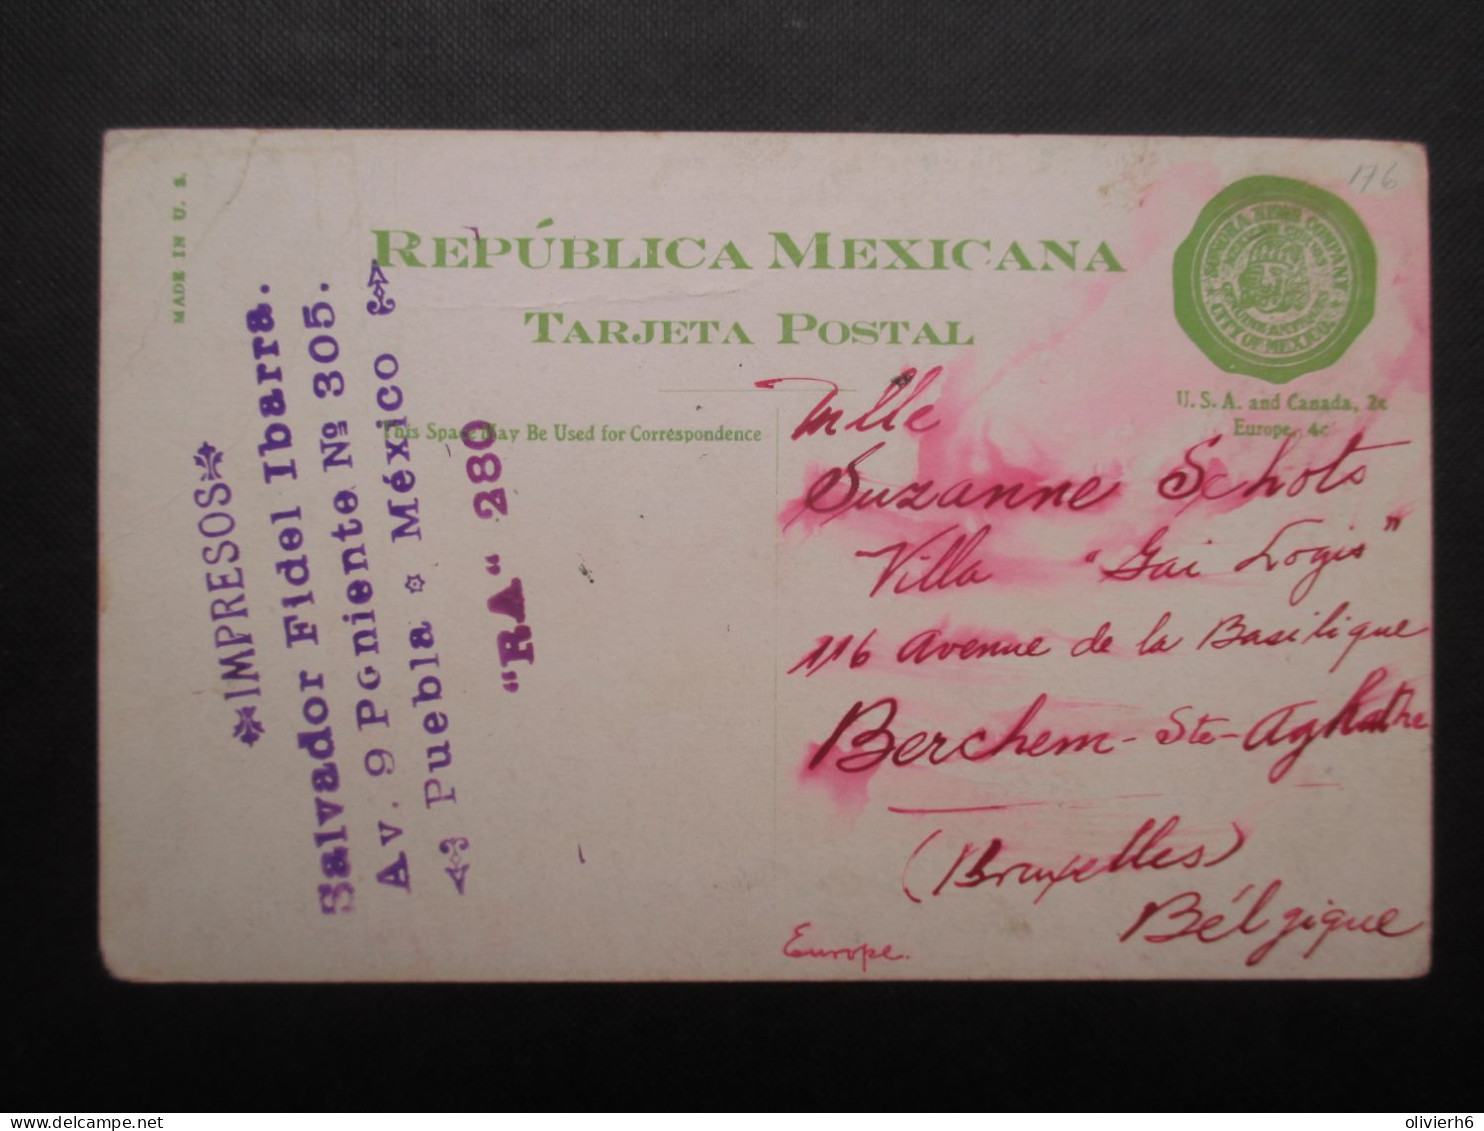 MADE IN U. S.
REPÚBLICA MEXICANA
TARJETA POSTAL
This Space May Be Used for Correspondence
SONORA NEWS COMPANY
CITY OF MEXICO.
U. S. A. and Canada, 2c
Europe, 4c
176
IMPRESOS
Salvador Fidel Ibarra.
Av. 9 Poniente Nº 305.
Puebla México
"RA" 280
Mlle
Suzanne Schots
Villa "Gai Logis"
116 Avenue de la Basilique
Berchem-Ste-Aghathe
(Bruxelles)
Bélgique
Europe.
olivierh6